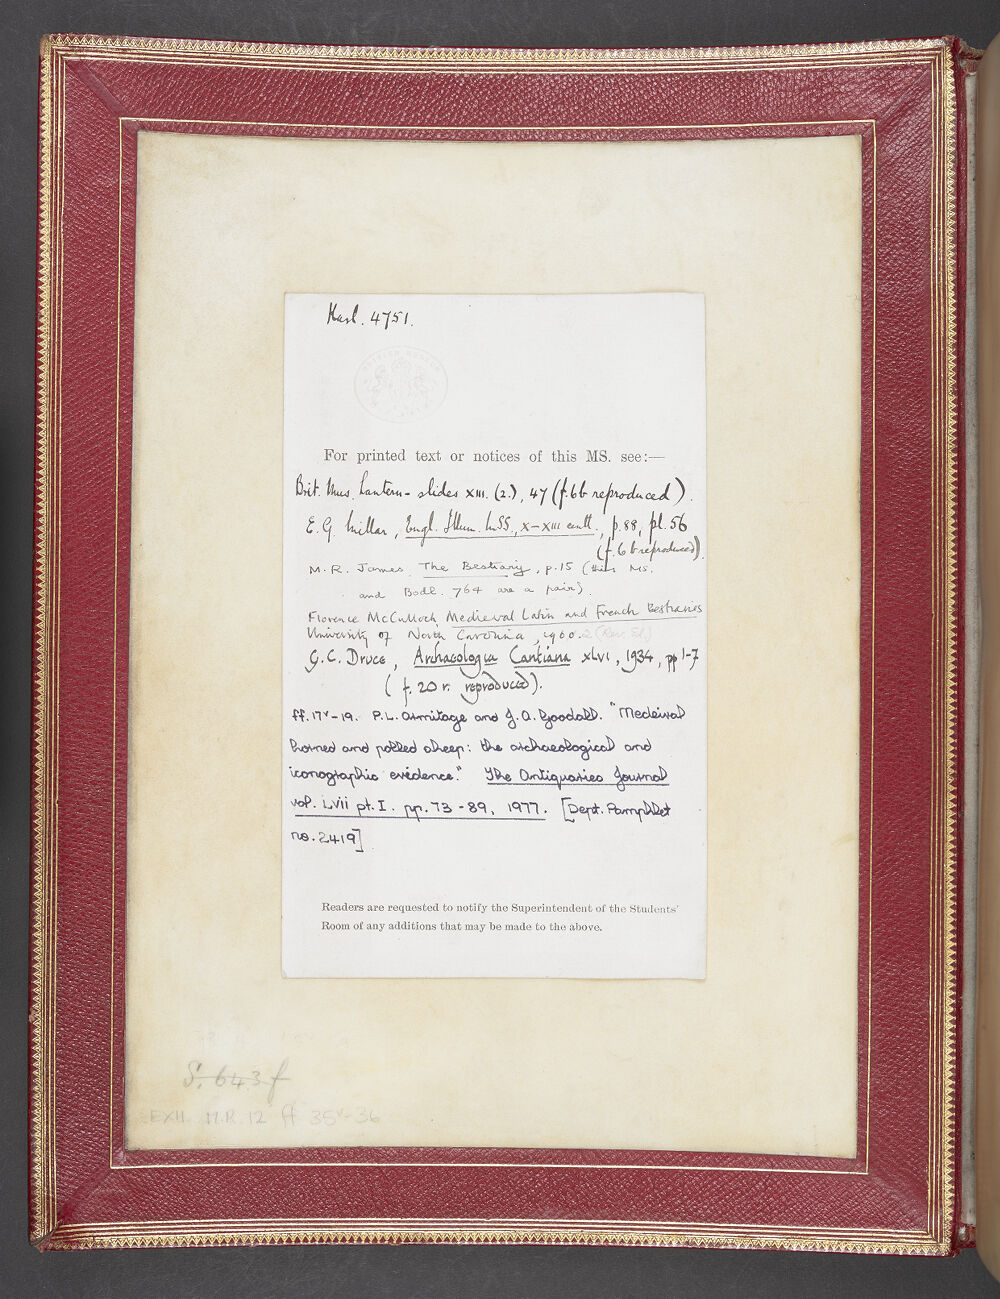 Harl. 4751.
BRITISH MUSEUM
For printed text or notices of this MS. see:—
Brit. Mus. Lantern-slides XIII. (2.), 47 (f. 6b reproduced).
E. G. Millar, Engl. Illum. MSS, X–XIII centt., p. 88, pl. 56
(f. 6b reproduced).
M. R. James, The Bestiary, p. 15 (this MS.
and Bodl. 764 are a pair).
Florence McCulloch, Medieval Latin and French Bestiaries
University of North Carolina, 1960. 2 (Rev. Ed.)
G. C. Druce, Archaeologia Cantiana XLVI, 1934, pp 1-7
(f. 20 r. reproduced).
ff. 17v-19. P.L. Armitage and J.A. Goodall. "Medeival
horned and polled sheep: the archaeological and
iconographic evidence." The Antiquaries Journal
vol. LVii pt. I. pp. 73-89, 1977. [Dept. Pamphlet
no. 2419]
Readers are requested to notify the Superintendent of the Students'
Room of any additions that may be made to the above.
S. 643 f
EXH. M.R. 12 ff 35v-36